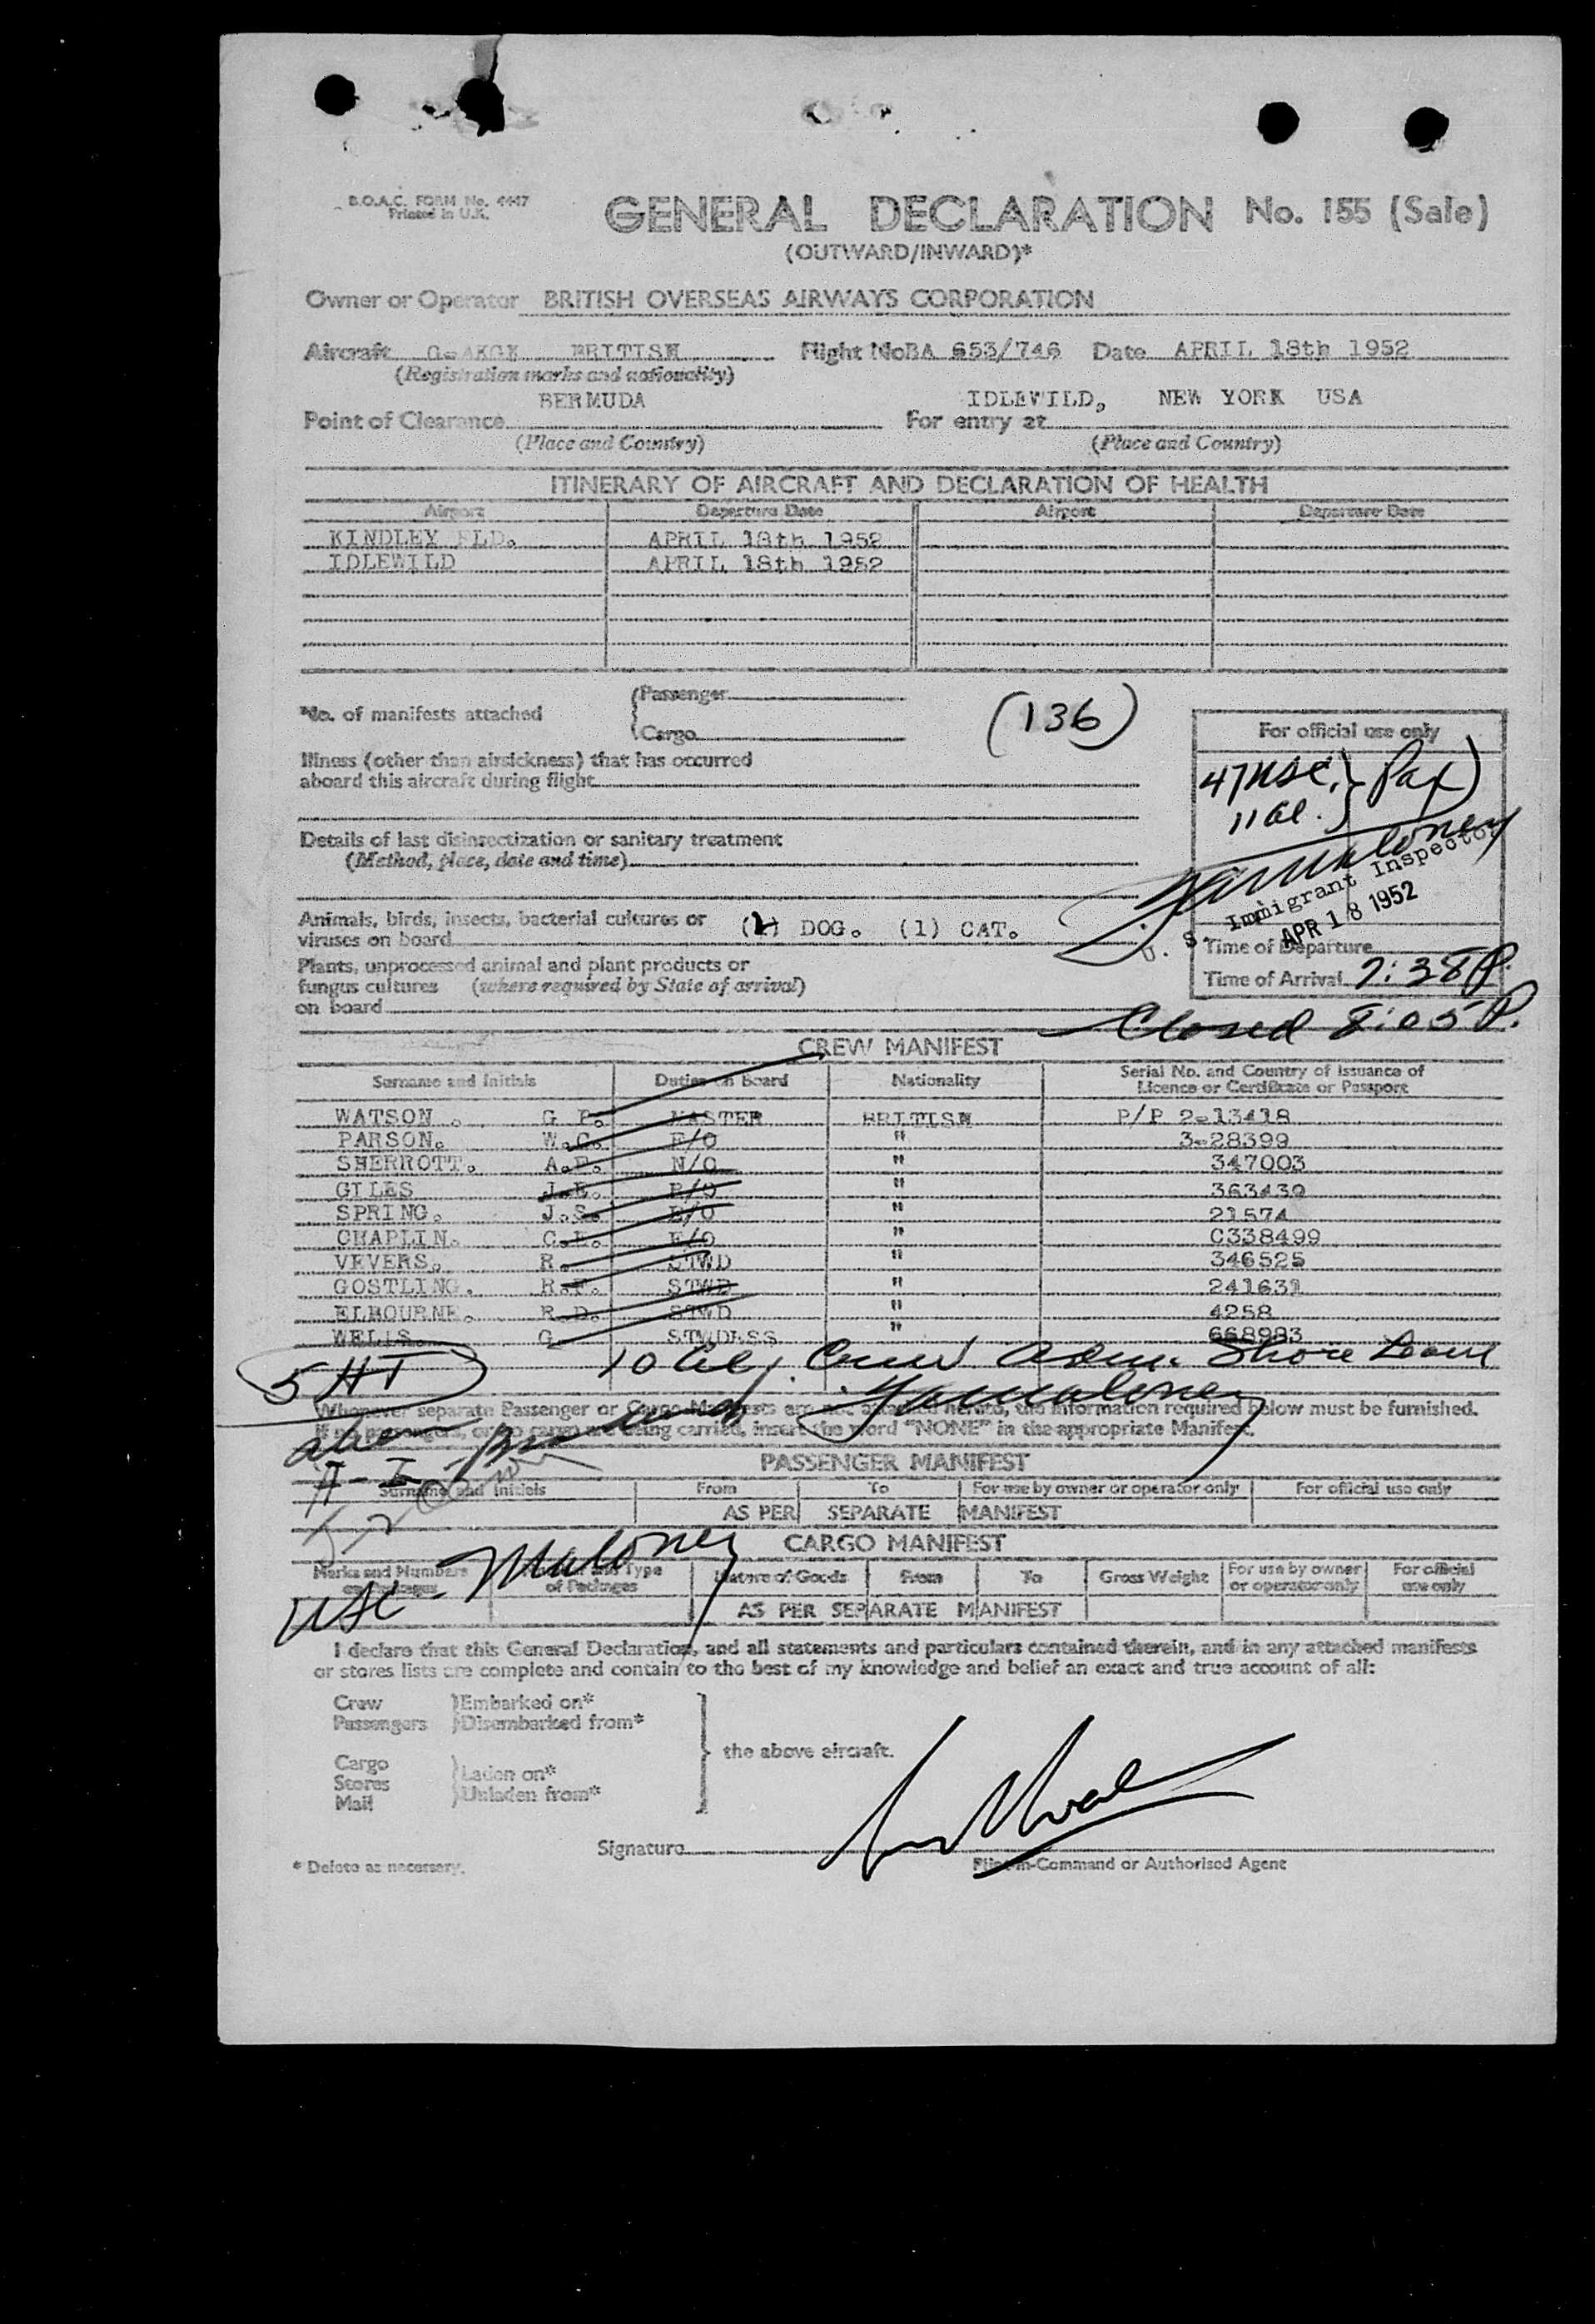 B.O.A.C. FORM No. 4447
Printed in U.K.
GENERAL DECLARATION No. 155 (Sale)
(OUTWARD/INWARD)*
Owner or Operator BRITISH OVERSEAS AIRWAYS CORPORATION
Aircraft G-AKGK BRITISH Flight No BA 653/746 Date APRIL 18th 1952
(Registration marks and nationality)
BERMUDA IDLEWILD, NEW YORK USA
Point of Clearance For entry at
(Place and Country) (Place and Country)
ITINERARY OF AIRCRAFT AND DECLARATION OF HEALTH
Airport Departure Date Airport Departure Date
KINDLEY FLD. APRIL 18th 1952
IDLEWILD APRIL 18th 1952
*No. of manifests attached
Passenger
Cargo
(136)
For official use only
Illness (other than airsickness) that has occurred
aboard this aircraft during flight
47 USC. } Pax
11 al.
Details of last disinsectization or sanitary treatment
(Method, place, date and time)
Maloney
U. S. Immigrant Inspector
APR 18 1952
Animals, birds, insects, bacterial cultures or
viruses on board (1) DOG. (1) CAT.
Time of Departure
Plants, unprocessed animal and plant products or
fungus cultures (where required by State of arrival)
on board
Time of Arrival 7:38 P.
Closed 8:05 P.
CREW MANIFEST
Surname and Initials Duties on Board Nationality Serial No. and Country of Issuance of
Licence or Certificate or Passport
WATSON . G P. MASTER BRITISH P/P 2-13418
PARSON. W.C. F/O " 3-28399
SHERROTT. A.P. N/O " 347003
GILES J.E. R/O " 363439
SPRING. J.S. E/O " 21574
CHAPLIN. C.E. E/O " C338499
VEVERS. R. STWD " 346525
GOSTLING. R.F. STWD " 241631
ELBOURNE. R.D. STWD " 4258
WELLS. G. STWDESS " 668983
5 HT
10 al. Crew adm. Shore Leave
Maloney
Whenever separate Passenger or Cargo Manifests are not attached hereto, the information required below must be furnished.
If no passengers, or no cargo are being carried, insert the word "NONE" in the appropriate Manifest.
PASSENGER MANIFEST
Surname and Initials From To For use by owner or operator only For official use only
AS PER SEPARATE MANIFEST
CARGO MANIFEST
USC - Maloney
Marks and Numbers on Packages Number and Type of Packages Nature of Goods From To Gross Weight For use by owner or operator only For official use only
AS PER SEPARATE MANIFEST
I declare that this General Declaration, and all statements and particulars contained therein, and in any attached manifests
or stores lists are complete and contain to the best of my knowledge and belief an exact and true account of all:
Crew Embarked on*
Passengers Disembarked from*
the above aircraft.
Cargo
Stores Laden on*
Mail Unladen from*
Signature
* Delete as necessary. Pilot-in-Command or Authorised Agent